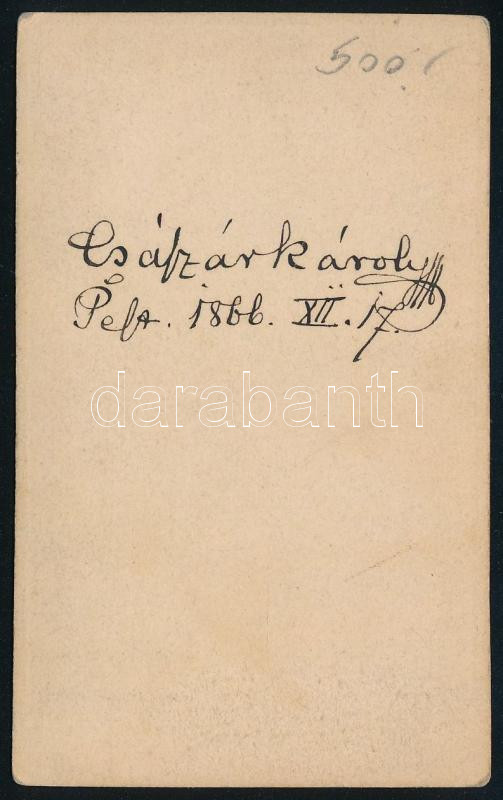 500
Császár károly
Pest. 1866. XII. 17.
darabanth